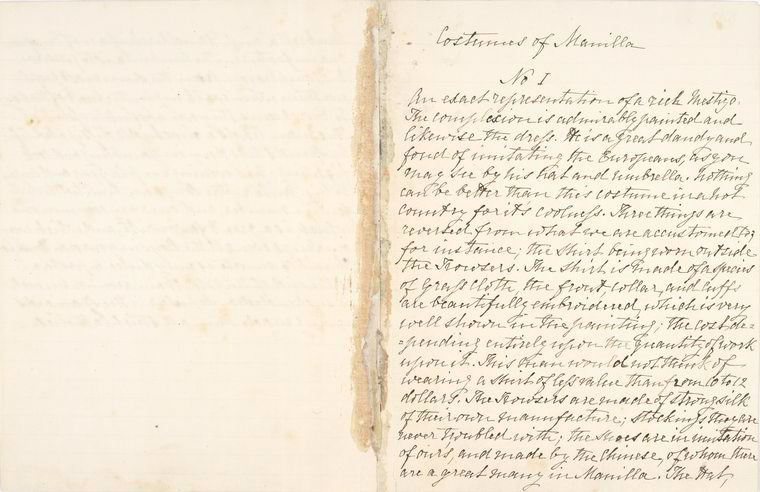 Costumes of Manilla
No I
An exact representation of a rich Mestizo.
The complexion is admirably painted and
likewise the dress. He is a great dandy and
fond of imitating the Europeans, as you
may see by his hat and umbrella. Nothing
can be better than this costume in a hot
country for it's coolness. Three things are
reversed from what we are accustomed to;
for instance; the shirt being worn outside
the Trowsers. The shirt is made of a species
of Grass Cloth, the front collar, and cuffs
are beautifully embroidered, which is very
well shown in the painting; the cost de=
=pending entirely upon the quantity of work
upon it. This man would not think of
wearing a shirt of less value than from 10 to 12
dollars. The Trowsers are made of strong silk
of their own manufacture; stockings they are
never troubled with; the shoes are in imitation
of ours, and made by the Chinese, of whom there
are a great many in Manilla. The Hat,